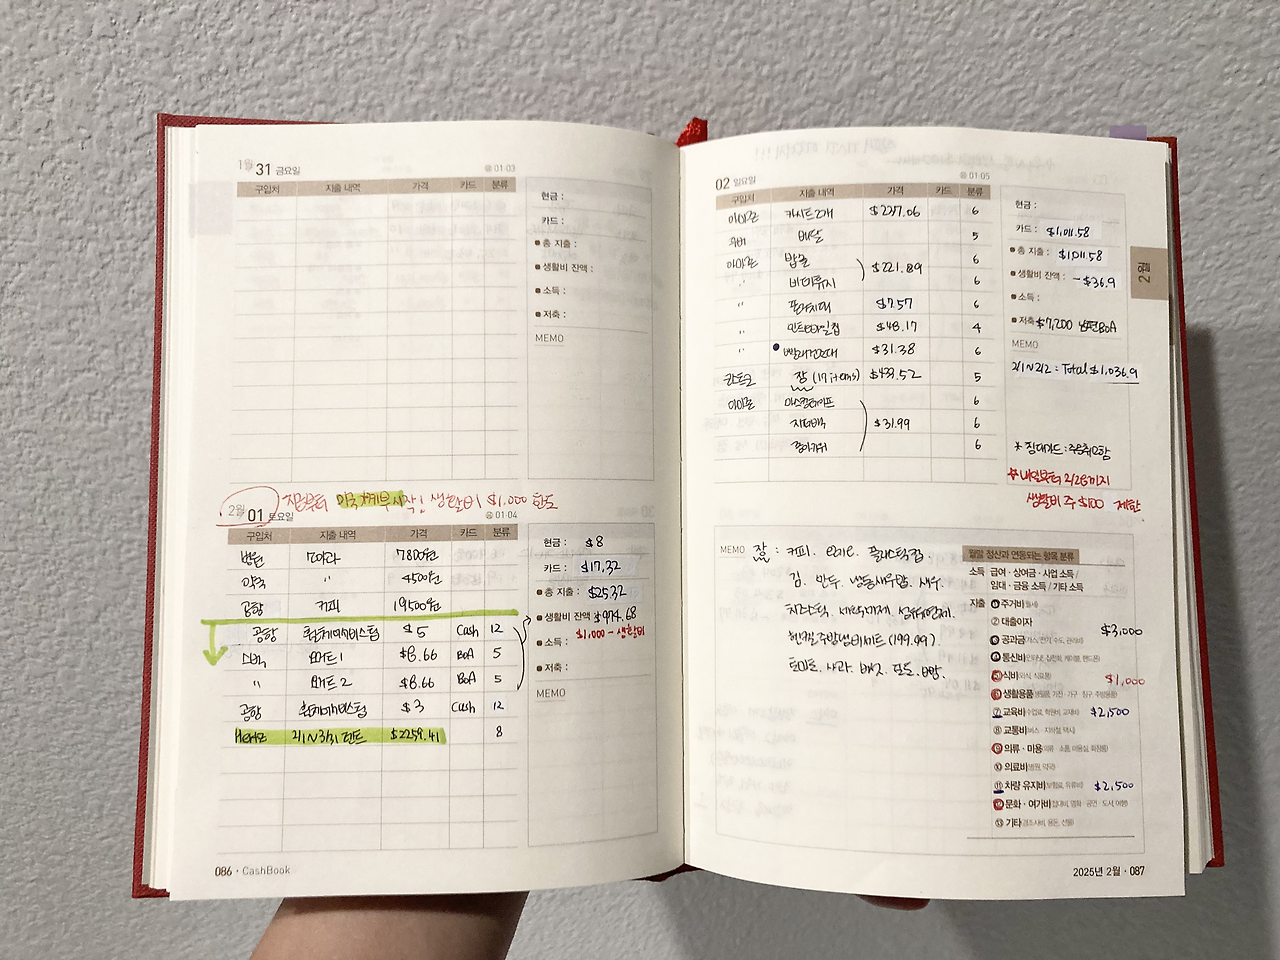 1월 31 금요일 음 01·03
구입처 지출 내역 가격 카드 분류
현금 :
카드 :
■ 총 지출 :
■ 생활비 잔액 :
■ 소득 :
■ 저축 :
MEMO
지금부터 미국 가계부 시작! 생활비 $1,000 한도
2월 01 토요일 음 01·04
구입처 지출 내역 가격 카드 분류
병원 7800원
약국 " 4500원
공항 커피 19500원
공항 $5 Cash 12
스벅 $8.66 BoA 5
" $8.66 BoA 5
공항 $3 Cash 12
Hertz 2/1~3/31 렌트 $2259.41 8
현금 : $8
카드 : $17.32
■ 총 지출 : $25.32
■ 생활비 잔액 : $974.68
$1,000 - 생활비
■ 소득 :
■ 저축 :
MEMO
086 · CashBook
02 일요일 음 01·05
구입처 지출 내역 가격 카드 분류
아마존 카시트 2개 $227.06 6
우버 배달 5
아마존 밥솥 6
" $221.89 6
" $7.57 6
" $48.17 4
" 빨래건조대 $31.38 6
코스트코 장 (17 items) $439.52 5
아마존 마스킹테이프 6
지퍼백 $31.99 6
종이타월 6
현금 :
카드 : $1,011.58
■ 총 지출 : $1,011.58
■ 생활비 잔액 : -$36.9
■ 소득 :
■ 저축 : $7,200 남편 BoA
MEMO
2/1~2/2 = Total $1,036.9
* 침대가드 : 주문취소함
* 내일부터 2/28까지
생활비 주 $100 제한
2월
MEMO 장 : 커피. 플라스틱컵.
김. 만두. 냉동새우볶밥. 새우.
지퍼락. 세탁세제. 섬유유연제.
(199.99).
토마토. 사과. 버섯. 포도. 빵.
월말 정산과 연동되는 항목 분류
소득 급여 · 상여금 · 사업 소득 /
임대 · 금융 소득 / 기타 소득
지출 ① 주거비(월세)
② 대출이자
③ 공과금(가스/전기, 수도, 관리비) $3,000
④ 통신비(인터넷, 집전화, 케이블, 핸드폰)
⑤ 식비(외식, 식료품) $1,000
⑥ 생활용품(생필품, 가전 · 가구 · 침구, 주방용품)
⑦ 교육비(수업료, 학원비, 교재비) $2,500
⑧ 교통비(버스 · 지하철, 택시)
⑨ 의류 · 미용(의류 · 소품, 미용실, 화장품)
⑩ 의료비(병원, 약국)
⑪ 차량 유지비(보험료, 유류비) $2,500
⑫ 문화 · 여가비(입대비, 영화 · 공연 · 도서, 여행)
⑬ 기타(경조사비, 용돈, 선물)
2025년 2월 · 087